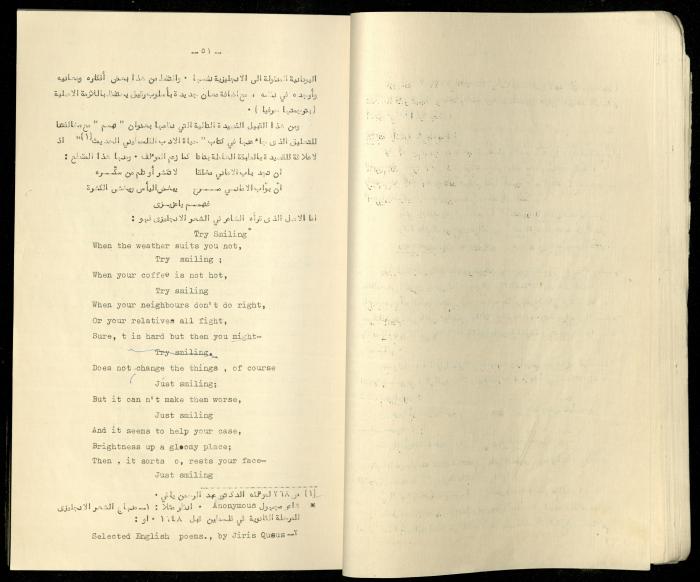 — ٥١ —
اليونانية المنقولة الى الانجليزية نفسها ، والتقط من هذا بعض أفكاره ومعانيه
وأوجده في ، مع اضافة معان جديدة بأسلوب رقيق يحتفظ باللازمة الاصلية
( بترجمتها حرفيا ) .
ومن هذا القبيل القصيدة التالية التي نظمها بعنوان " تبسم " مع مخالفتنا
للتعليق الذى جاء عنها في كتاب " حياة الادب الفلسطيني الحديث(١)" اذ
لا علاقة للقصيدة كما زعم المؤلف . ومنها هذا المقطع :
ان تجد باب الاماني مغلقا لا تنفر أو تلم من
انّ بوّاب الاماني يبغض اليأس ويخشى
فتبسم ياعزيزى
اما الاصل الذى قرأه الشاعر في الشعر الانجليزى فهو :
Try Smiling*
When the weather suits you not,
Try smiling ;
When your coffee is not hot,
Try smiling
When your neighbours don't do right,
Or your relatives all fight,
Sure, t is hard but then you might—
Try smiling.
Does not change the things , of course
Just smiling;
But it can n't make them worse,
Just smiling
And it seems to help your case,
Brightness up a gloomy place;
Then , it sorts o, rests your face—
Just smiling
(١) ص ٢٦٨ لمؤلفه الدكتور عبد الرحمن ياغي .
* شاعر مجهول Anonymous . انظر مثلا : ١— منهاج الشعر الانجليزى
للمرحلة الثانوية في فلسطين قبل ١٩٤٨ . او :
Selected English poems., by Jiris Qusus —٢